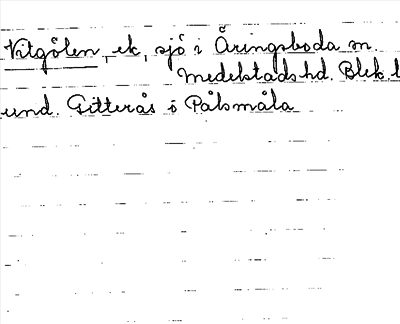 Vitgölen, ek, sjö i Äringsboda m.
Medelstads hd. Blek. l
und. Gitterås i Pålsmåla